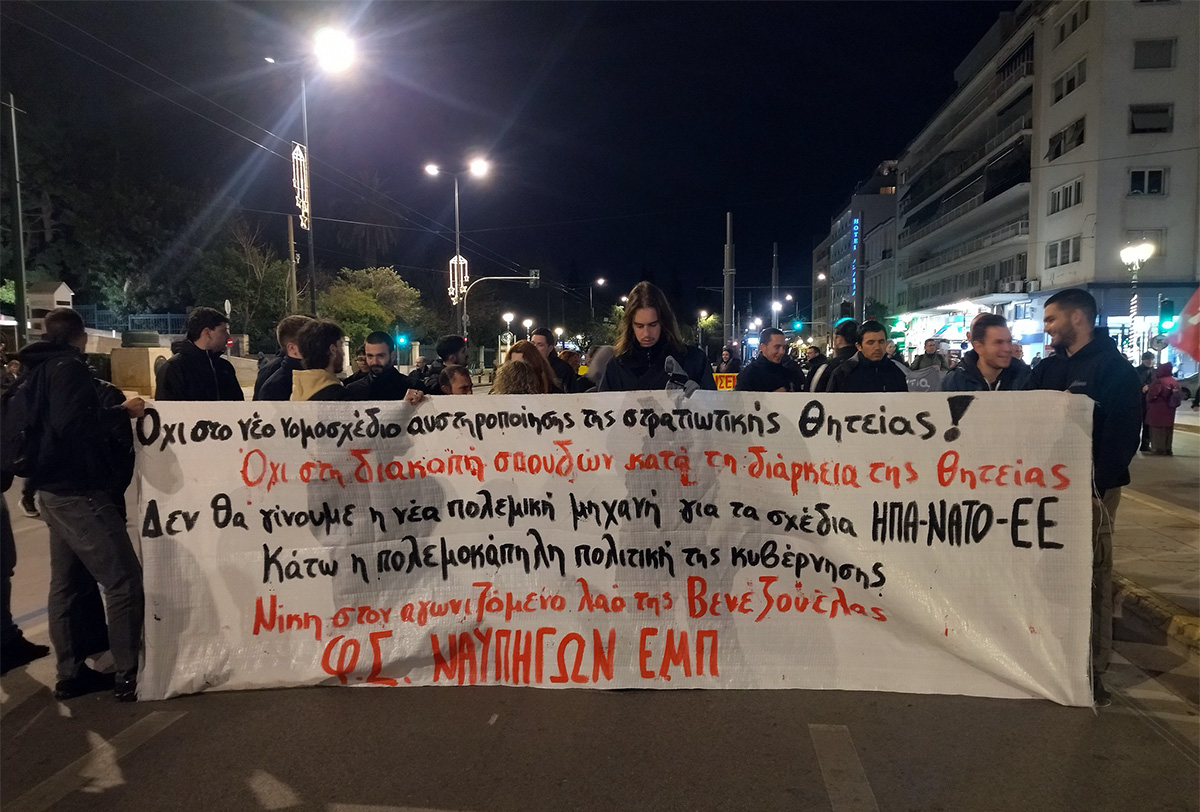 Όχι στο νέο νομοσχέδιο αυστηροποίησης της στρατιωτικής θητείας!
Όχι στη διακοπή σπουδών κατά τη διάρκεια της θητείας
Δεν θα γίνουμε η νέα πολεμική μηχανή για τα σχέδια ΗΠΑ-ΝΑΤΟ-ΕΕ
Κάτω η πολεμοκάπηλη πολιτική της κυβέρνησης
Νίκη στον αγωνιζόμενο λαό της Βενεζουέλας
Φ.Σ. ΝΑΥΠΗΓΩΝ ΕΜΠ
HOTEL